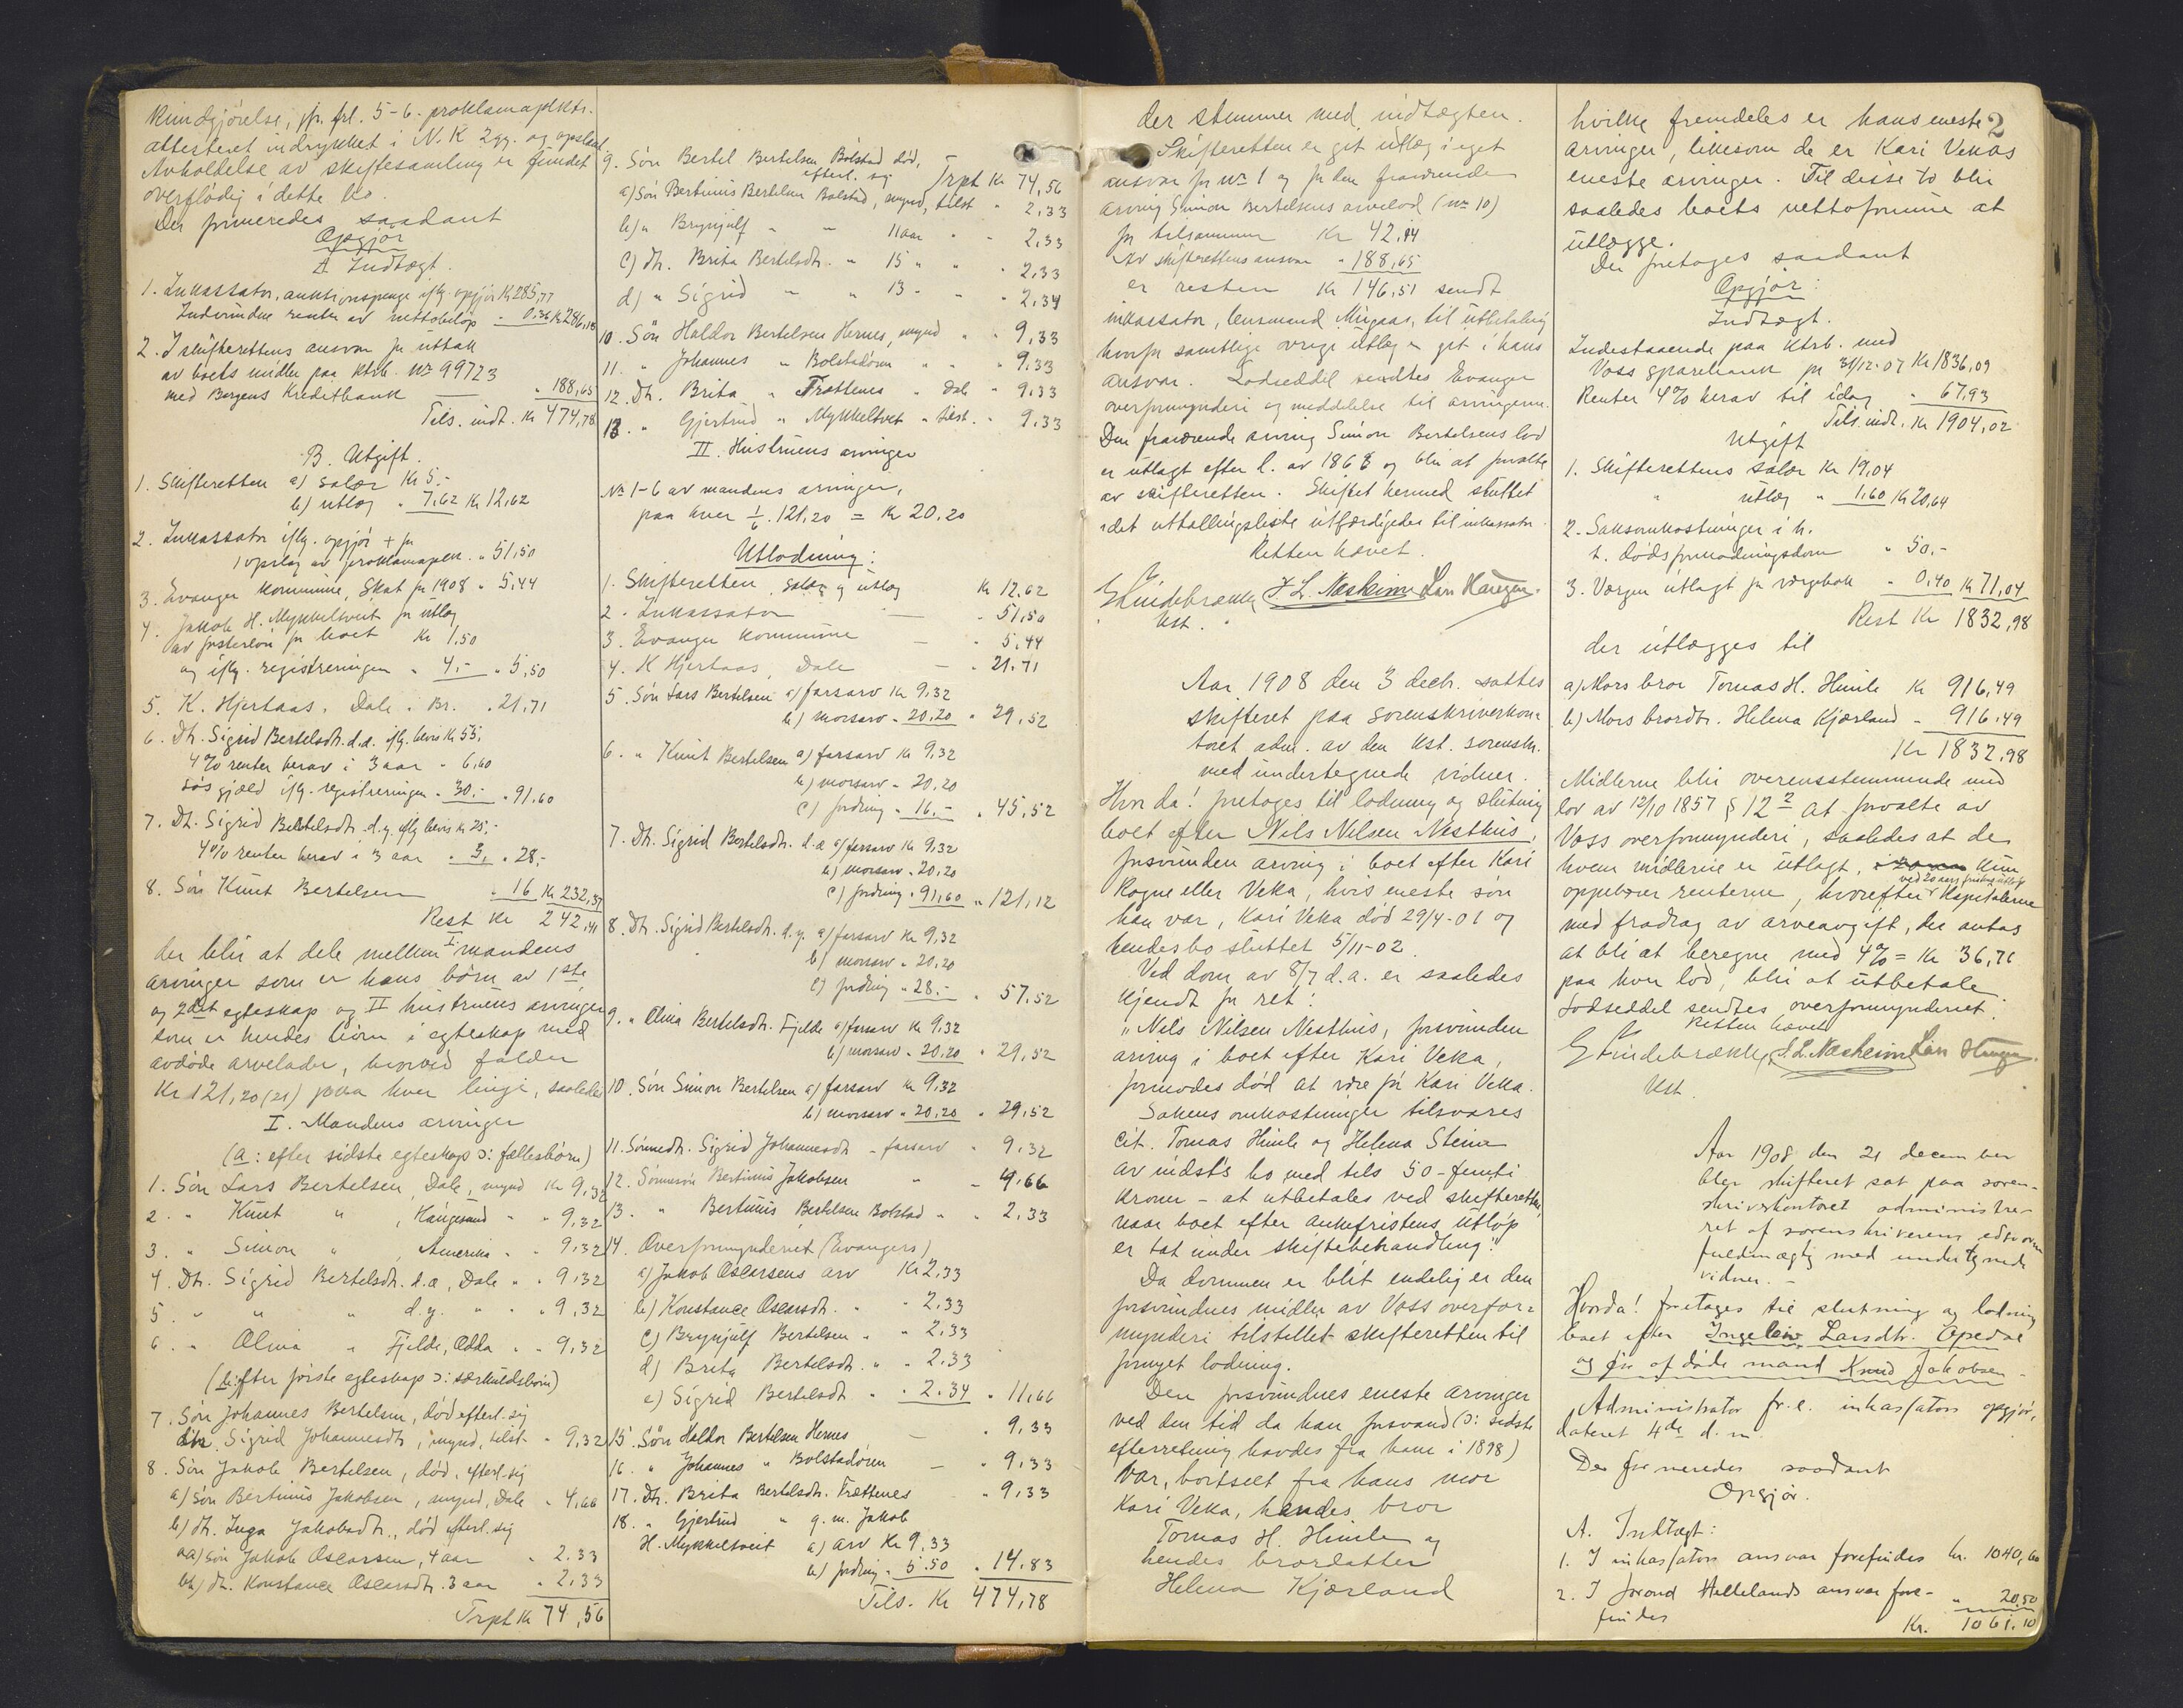 kundgjørelse, jfr. frl. 5-6. proklamapkts.
attesteret indrykket i N. K 2gg. og opslaat
Avholdelse av skiftesamling er fundet
overflödig i dette bo.
Der formeredes saadant
Opgjör
A. Indtægt.
1. Inkassator, auktionspenge iflg. opgjör Kr 285,77
Indvundne renter av nettobeløp " 0.36 Kr 286,13
2. I skifterettens ansvar fr uttak
av boets midler paa ktrb. No 99723
med Bergens Kreditbank — " 188,65
Tils. indt. Kr 474,78
B. Utgift.
1. Skifteretten a) salær Kr 5.-
b) utlæg " 7,62 Kr 12,62
2. Inkassator iflg. opgjör + fr
1 opslag av proklamapkt. " 51,50
3. Evanger kommune, Skat fr 1908 " 5,44
4. Jakob H. Mykkeltveit fr utlæg
av fosterlön fr boet Kr 1,50
og iflg. registreringen " 4.- " 5,50
5. K. Hjertaas, Dale " Br. " 21,71
6. Dtr. Sigrid Bertelsdtr. d.æ. iflg. bevis Kr 55,
4% renter herav i 3 aar " 6,60
Lös gjæld iflg. registreringen " 30.- " 91,60
7. Dt. Sigrid Bertelsdtr. d.y. iflg bevis Kr 25.-
4% renter herav i 3 aar " 3,- " 28,-
8. Sön Knut Bertelsen " 16 Kr 232,37
Rest Kr 242,41
der blir at dele mellem I mandens
arvinger som er hans börn av 1ste
og 2det egteskap og II hustruens arvinger
som er hendes börn i egteskap med
avdöde arvelader, hvorved falder
Kr 121,20 (21) paa hver linje, saaledes
I. Mandens arvinger
(a: efter sidste egteskap ɔ: fællesbörn)
1. Sön Lars Bertelsen, Dale, mynd Kr 9,32
2. " Knut " , Haugesund " " 9,32
3. " Simon " , Amerika " " 9,32
4. Dtr. Sigrid Bertelsdtr. d.æ, Dale " " 9,32
5. " " " d.y. " " " 9,32
6. " Olina " Fjelde, Odda " " 9,32
(b: efter förste egteskap ɔ: særkuldsbörn)
7. Sön Johannes Bertelsen, död efterl. sig
dtr. Sigrid Johannesdtr, mynd, tilst " 9,32
8. Sön Jakob Bertelsen, död, efterl. sig
a) Sön Bertinius Jakobsen, mynd, Dale " 4,66
b) dt. Inga Jakobsdtr., död efterl. sig
aa) sön Jakob Oscarsen, 4 aar " 2.33
bb) dt. Konstance Oscarsdtr. 3 aar " 2,33
Trpt Kr 74,56
9. Sön Bertel Bertelsen Bolstad död,
efterl. sig Trpt Kr 74,56
a) Sön Bertinius Bertelsen Bolstad, mynd, tilst " 2,33
b) " Brynjulf " " 11 aar " " 2,33
c) Dt. Brita Bertelsdtr. " 15 " " " 2,33
d) " Sigrid " " 13 " " 2,34
10. Sön Haldor Bertelsen Hernes, mynd " " 9,33
11. " Johannes " Bolstadören " " " 9,33
12. Dt. Brita " Trættenes " Dale " 9,33
13. " Gjertrud " Mykkeltveit " tilst. " 9,33
II. Hustruens arvinger
No 1-6 av mandens arvinger,
paa hver 1/6. 121,20 = Kr 20,20
Utlodning:
1. Skifteretten, salær og utlæg Kr 12,62
2. Inkassator — " 51,50
3. Evanger kommune — " 5,44
4. K Hjertaas, Dale — " 21,71
5. Sön Lars Bertelsen a) farsarv Kr 9,32
b) morsarv " 20,20 " 29,52
6. " Knut Bertelsen a) farsarv Kr 9,32
b) morsarv " 20,20
c) fordring " 16.- " 45,52
7. Dt. Sigrid Bertelsdtr. d.æ a) farsarv Kr 9,32
b) morsarv " 20,20
c) fordring " 91,60 " 121,12
8. Dtr. Sigrid Bertelsdtr. d.y. a) farsarv Kr 9,32
b) morsarv " 20,20
c) fordring " 28.- " 57,52
9. " Olina Bertelsdtr. Fjelde a) farsarv Kr 9,32
b) morsarv " 20,20 " 29,52
10. Sön Simon Bertelsen a) farsarv Kr 9,32
b) morsarv " 20,20 " 29,52
11. Sönnedtr. Sigrid Johannesdtr - farsarv " 9,32
12. Sönnesön Bertinius Jakobsen " - 4,66
13. " Bertinius Bertelsen Bolstad " " 2,33
14. Overformynderiet (Evangers)
a) Jakob Oscarsens arv Kr 2,33
b) Konstance Oscarsdtr. " " 2.33
c) Brynjulf Bertelsen " " 2.33
d) Brita Bertelsdtr. " " 2.33
e) Sigrid Bertelsdtr " " 2.34 " 11,66
15. Sön Haldor Bertelsen Hernes — " 9,33
16. " Johannes " Bolstadören — " 9,33
17. Dt. Brita Bertelsdtr. Trættenes " 9,33
18. " Gjertrud " g. m. Jakob
H. Mykkeltveit a) arv Kr 9,33
b) fordring " 5.50 " 14.83
Tils. Kr 474,78
der stemmer med indtægten.
Skifteretten er git utlæg i eget
ansvar for No 1 og for den fraværende
arving Simon Bertelsens arvelod (No 10)
fr tilsammen Kr 42,14
Av skifterettens ansvar " 188,65
er resten Kr 146,51 sendt
inkassator, lensmand Mugaas, til utbetaling
hvorfor samtlige övrige utlæg er git i hans
ansvar. Lodseddel sendtes Evanger
overformynderi og meddelelse til arvingerne.
Den fraværende arving Simon Bertelsens lod
er utlagt efter l. av 1868 og blir at forvalte
av skifteretten. Skiftet hermed sluttet
idet uttællingsliste utfærdigedes til inkassator.
Retten hævet.
E Lindebrække J. L. Næsheim Lars Haugen
kst.
Aar 1908 den 3 decbr. sattes
skifteret paa sorenskriverkon-
toret adm. av den kst. sorenskr.
med undertegnede vidner.
Hvor da! foretages til lodning og slutning
boet efter Nils Nilsen Nesthus,
forsvunden arving i boet efter Kari
Rogne eller Veka, hvis eneste sön
han var, Kari Veka död 29/4-01 og
hendes bo sluttet 5/11-02.
Ved dom av 8/7 d.a. er saaledes
kjendt for ret:
"Nils Nilsen Nesthus, forsvunden
arving i boet efter Kari Veka,
formodes död at være för Kari Veka.
Sakens omkostninger tilsvares
cit. Tomas Himle og Helena Steine
av indst's bo med tils 50 - femti
kroner - at utbetales ved skifteretten,
naar boet efter ankefristens utlöp
er tat under skiftebehandling."
Da dommen er blit endelig er den
forsvundnes midler av Voss overfor-
mynderi tilstillet skifteretten til
fornyet lodning.
Den forsvundnes eneste arvinger
ved den tid da han forsvandt (ɔ: sidste
efterretning havdes fra ham i 1898)
var, bortseet fra hans mor
Kari Veka, hendes bror
Tomas H. Himle og
hendes brordatter
Helena Kjærland
2
hvilke fremdeles er hans eneste
arvinger, likesom de er Kari Vekas
eneste arvinger. Til disse to blir
saaledes boets nettoformue at
utlægge.
Der foretages saadant
Opgjör:
Indtægt.
Indestaaende paa ktrb. med
Voss sparebank pr 31/12-07 Kr 1836,09
Renter 4% herav til idag " 67,93
Tils. indt. Kr 1904,02
Utgift
1. Skifterettens salær Kr 19,04
" utlæg " 1,60 Kr 20,64
2. Saksomkostninger i h.
t. dödsformodningsdom " 50.-
3. Værgen utlagt for værgebok " 0,40 Kr 71,04
Rest Kr 1832,98
der utlægges til
a) Mors bror Tomas H. Himle Kr 916,49
b) Mors brordtr. Helena Kjærland - 916,49
Kr 1832,98
Midlerne blir overensstemmende med
lov av 12/10 1857 § 12 2 at forvalte av
Voss overformynderi, saaledes at de
hvem midlerne er utlagt, kun
ved 20 aars fristens utlöp
oppebærer renterne, hvorefter kapitalerne
med fradrag av arveavgift, der antas
at bli at beregne med 4% = Kr 36,76
paa hver lod, blir at utbetale.
Lodseddel sendtes overformynderiet.
Retten hævet
E Lindebrække J. L. Næsheim Lars Haugen.
kst.
Aar 1908 den 21 december
blev skifteret sat paa soren-
skriverkontoret administre-
ret af sorenskriverens edsvorne
fuldmægtig med undertegnede
vidner. -
Hvorda! foretages til slutning og lodning
boet efter Ingeleiv Larsdtr. Opedal
og för afdöde mand Knud Jakobsen -
Administrator fr. l. inkassators opgjör,
dateret 4de d. m.
Der formeredes saadant
Opgjör.
A. Indtægt:
1. I inkassators ansvar forefindes kr. 1040,60
2. I forand Hellelands ansvar fore-
findes " 20,50
Kr. 1061.10